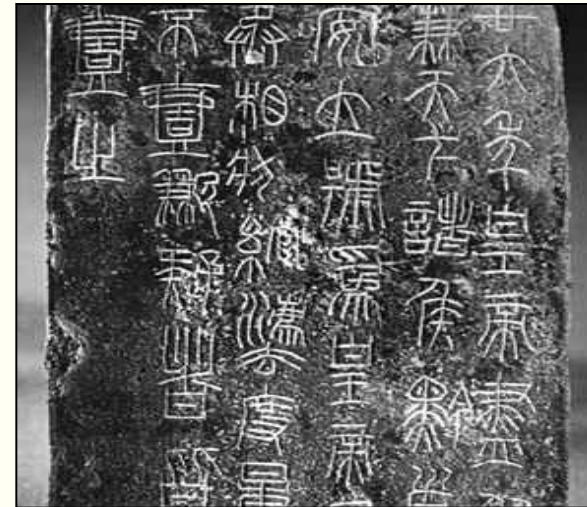 廿六年皇帝盡并
兼天下諸侯黔首
安立號為皇帝
丞相狀綰灋度量
不壹歉疑者皆明
壹之